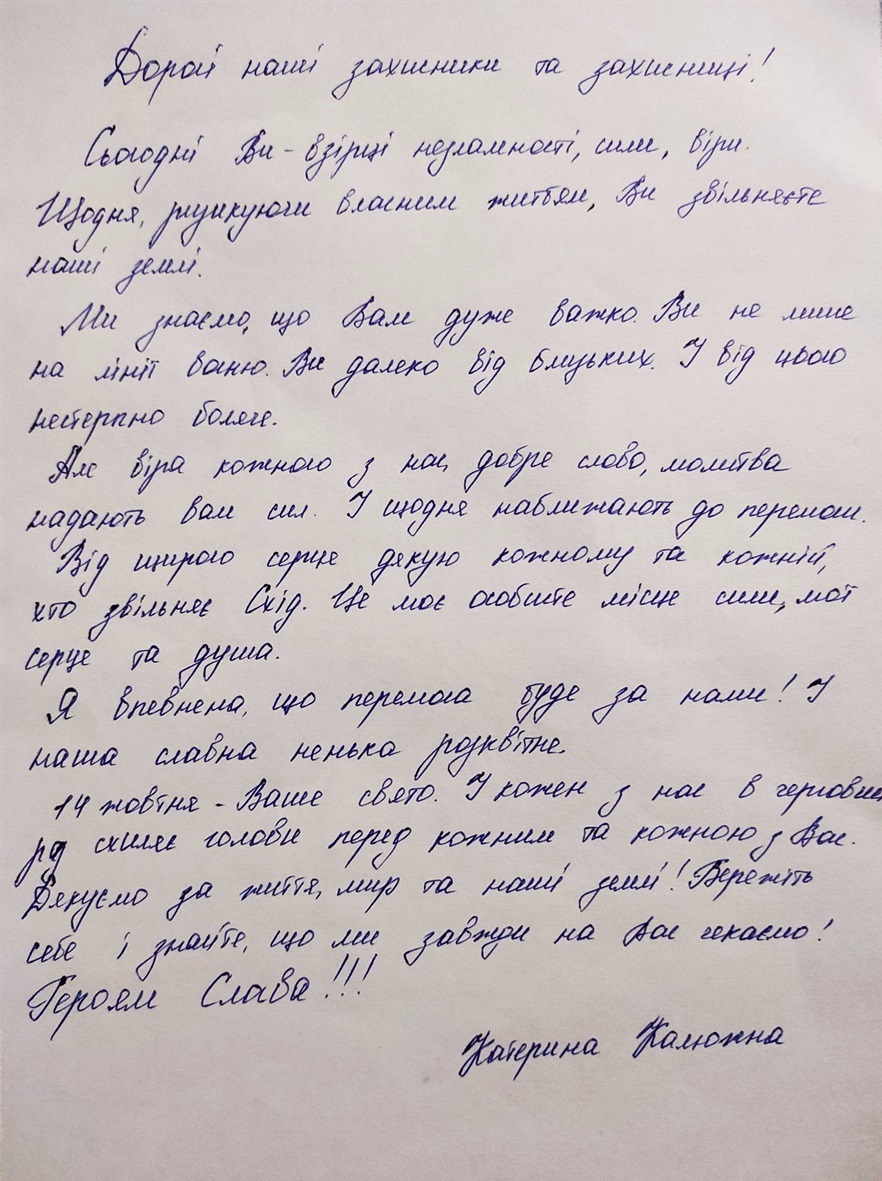 Дорогі наші захисники та захисниці!
Сьогодні Ви - взірці незламності, сили, віри.
Щодня, ризикуючи власним життям, Ви звільняєте
наші землі.
Ми знаємо, що Вам дуже важко. Ви не лише
на лінії вогню. Ви далеко від близьких. І від цього
нестерпно боляче.
Але віра кожного з нас, добре слово, молитва
надають вам сил. І щодня наближають до перемоги.
Від щирого серця дякую кожному та кожній,
хто звільняє Схід. Це моє особисте місце сили, мої
серце та душа.
Я впевнена, що перемога буде за нами! І
наша славна ненька розквітне.
14 жовтня - Ваше свято. І кожен з нас в черговий
раз схиляє голови перед кожним та кожною з Вас.
Дякуємо за життя, мир та наші землі! Бережіть
себе і знайте, що ми завжди на Вас чекаємо!
Героям Слава!!!
Катерина Калюжна